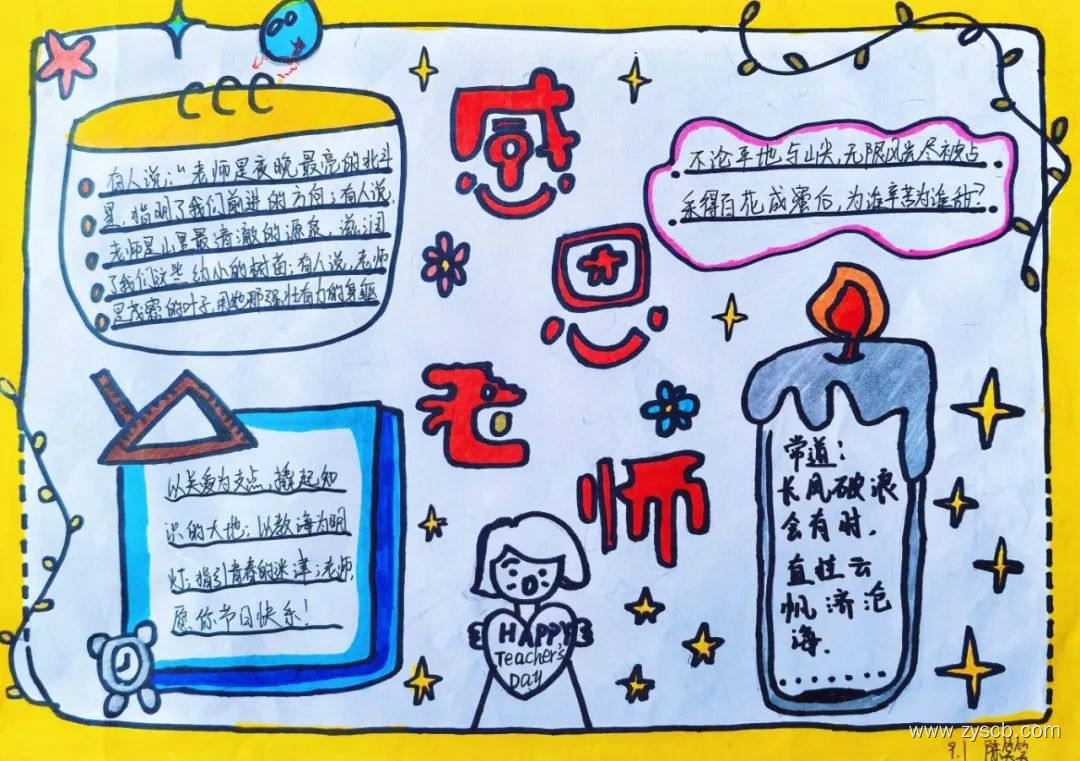 感
恩
老
师
有人说："老师是夜晚最亮的北斗
星，指明了我们前进的方向；有人说，
老师是山里最清澈的源泉，滋润
了我们这些幼小的树苗；有人说，老师
是茂密的叶子，用她那强壮有力的身躯
不论平地与山尖，无限风光尽被占
采得百花成蜜后，为谁辛苦为谁甜？
以关爱为支点，撬起知
识的大地；以教诲为明
灯；指引青春的迷津；老师，
愿你节日快乐！
HAPPY
Teacher's
Day
常道：
长风破浪
会有时，
直挂云
帆济沧
海.
www.zyscb.com
9.1 陈